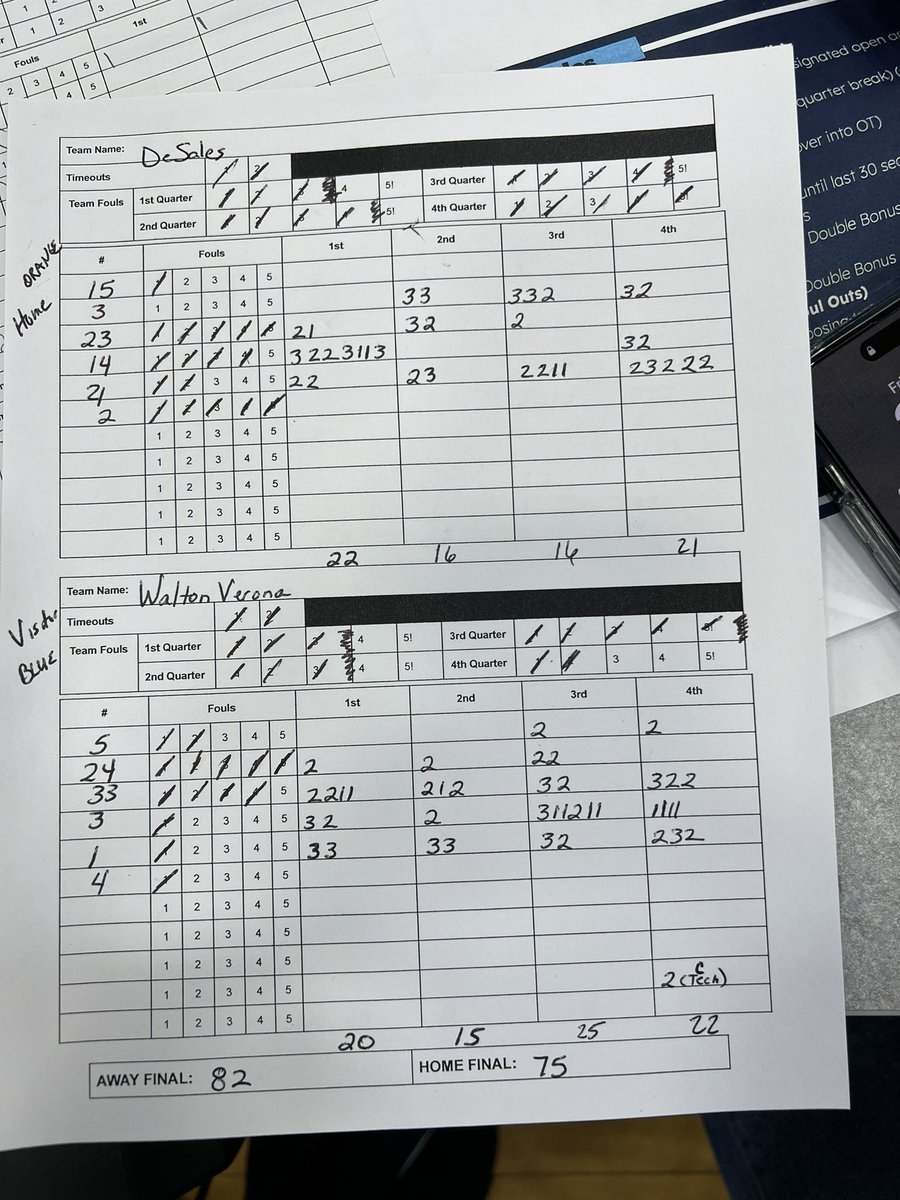 1 2 3
1st
Fouls
2 3 4 5
4 5
signated open a
quarter break) (
over into OT)
until last 30 sec
Double Bonus
Double Bonus
ul Outs)
Team Name: DeSales
Timeouts 1 2
Team Fouls 1st Quarter 1 2 3 4 5! 3rd Quarter 1 2 3 4 5!
2nd Quarter 1 2 3 4 5! 4th Quarter 1 2 3 4 5!
ORANGE
Home
# Fouls 1st 2nd 3rd 4th
15 1 2 3 4 5 33 332 32
3 1 2 3 4 5 32 2
23 1 2 3 4 5 21
14 1 2 3 4 5 3223113 32
21 1 2 3 4 5 22 23 2211 23222
2 1 2 3 4 5
1 2 3 4 5
1 2 3 4 5
1 2 3 4 5
1 2 3 4 5
1 2 3 4 5
22 16 16 21
Team Name: Walton Verona
Timeouts 1 2
Visitor
BLUE
Team Fouls 1st Quarter 1 2 3 4 5! 3rd Quarter 1 2 3 4 5!
2nd Quarter 1 2 3 4 5! 4th Quarter 1 2 3 4 5!
# Fouls 1st 2nd 3rd 4th
5 1 2 3 4 5 2 2
24 1 2 3 4 5 2 2 22
33 1 2 3 4 5 2211 212 32 322
3 1 2 3 4 5 32 2 311211 1111
1 1 2 3 4 5 33 33 32 232
4 1 2 3 4 5
1 2 3 4 5
1 2 3 4 5
1 2 3 4 5
1 2 3 4 5 2 (C Tech)
1 2 3 4 5
20 15 25 22
AWAY FINAL: 82 HOME FINAL: 75